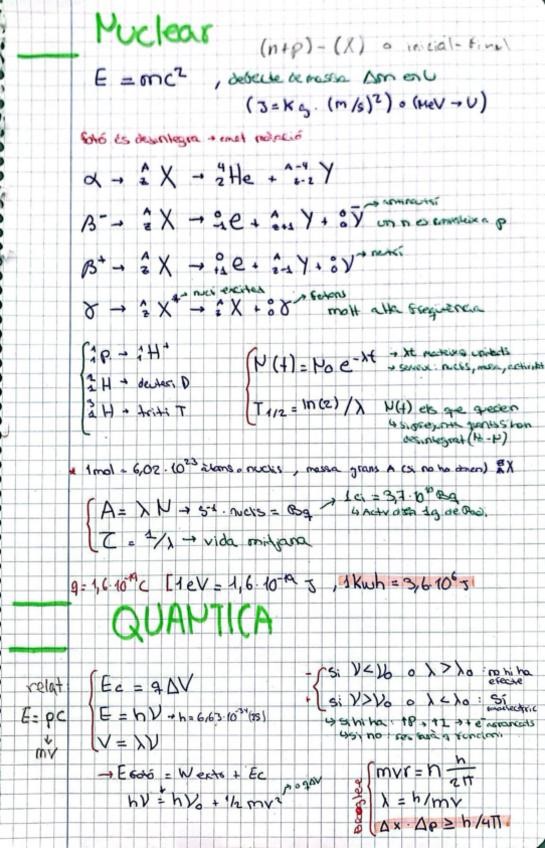 Nuclear
(n+p) - (X) o inicial-final
E = mc² , defecte de massa Δm en U
(J = Kg · (m/s)²) o (MeV → U)
fotó és desintegra → emet radiació
α → ᴬ_Z X → ⁴₂He + ᴬ⁻⁴_Z-2 Y
β⁻ → ᴬ_Z X → ⁰₋₁e + ᴬ_Z+1 Y + ⁰₀ν̅ → antineutrí
un n es converteix a p
β⁺ → ᴬ_Z X → ⁰₊₁e + ᴬ_Z-1 Y + ⁰₀ν → neutrí
γ → ᴬ_Z X* → ᴬ_Z X + ⁰₀γ → fotons
→ nucli excitat
molt alta freqüència
¹₁p → ¹₁H⁺
²₁H → deuteri D
³₁H → triti T
N(t) = N₀ e^-λt → λt mateixes unitats
→ serveix: nuclis, massa, activitat
T₁/₂ = ln(2)/λ N(t) els que queden
↳ si pregunta quants s'han
desintegrat (N₀-N)
* 1mol = 6,02·10²³ àtoms o nuclis, massa grams A (si no ho donen) ᴬ_Z X
A = λN → s⁻¹ · nuclis = Bq → 1Ci = 3,7·10¹⁰ Bq
↳ Activitat 1g de Radi.
τ = 1/λ → vida mitjana
q = 1,6·10⁻¹⁹C [1eV = 1,6·10⁻¹⁹ J , 1Kwh = 3,6·10⁶ J
QUANTICA
relat
E = pc
↓
mv
Ec = qΔV
E = hν → h = 6,63·10⁻³⁴ (Js)
V = λν
- si ν<ν₀ o λ>λ₀ : no hi ha
efecte
+ si ν>ν₀ o λ<λ₀ : Sí
fotoelectric
↳ si hi ha : ↑P → ↑I → + e⁻ arrancats
→ E fotó = W extr + Ec
hν = hν₀ + 1/2 mv² → o qΔV
Broglie
mvr = n h/2π
λ = h/mv
Δx · Δp ≥ h/4π